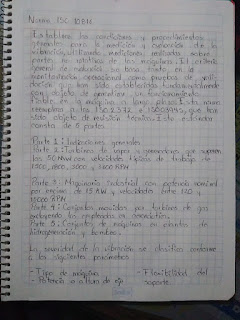 Norma ISO 10816
Establece las condiciones y procedimientos
generales para la medición y evaluación de la
vibración, utilizando mediciones realizadas sobre
partes no rotativas de las maquinas. El criterio
general de evaluación se basa tanto en la
monitorización operacional como pruebas de validación
que han sido establecidas fundamentalmente
con objeto de garantizar
fiable de la maquina a largo plazo. Esta norma
reemplaza a las ISO 2372 e ISO 3945, que han
sido objeto de revisión técnica. Este estándar
consta de 5 partes
Parte 1: Indicaciones generales
Parte 2: Turbinas de vapor y generadores que superen
los 50 MW con velocidades típicas de trabajo de
1500, 1800, 3000, 3600 RPM.
Parte 3: Maquinaria industrial con potencia nominal
por encima de 15 kW y velocidades entre 120 y
15000 RPM
Parte 4: Conjuntos movidos por turbinas de gas
excluyendo las empleadas en aeronáutica.
Parte 5: Conjuntos de maquinas en plantas de
hidrogeneración y bombeo.
La severidad de la vibración se clasifica conforme
a los siguientes parámetros
- Tipo de maquina - Flexibilidad del
- Potencia o altura de eje soporte